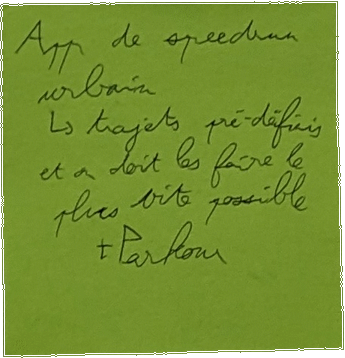 App de speedrun
urbain
↳ trajets pré-définis
et on doit les faire le
plus vite possible
+ Parkour